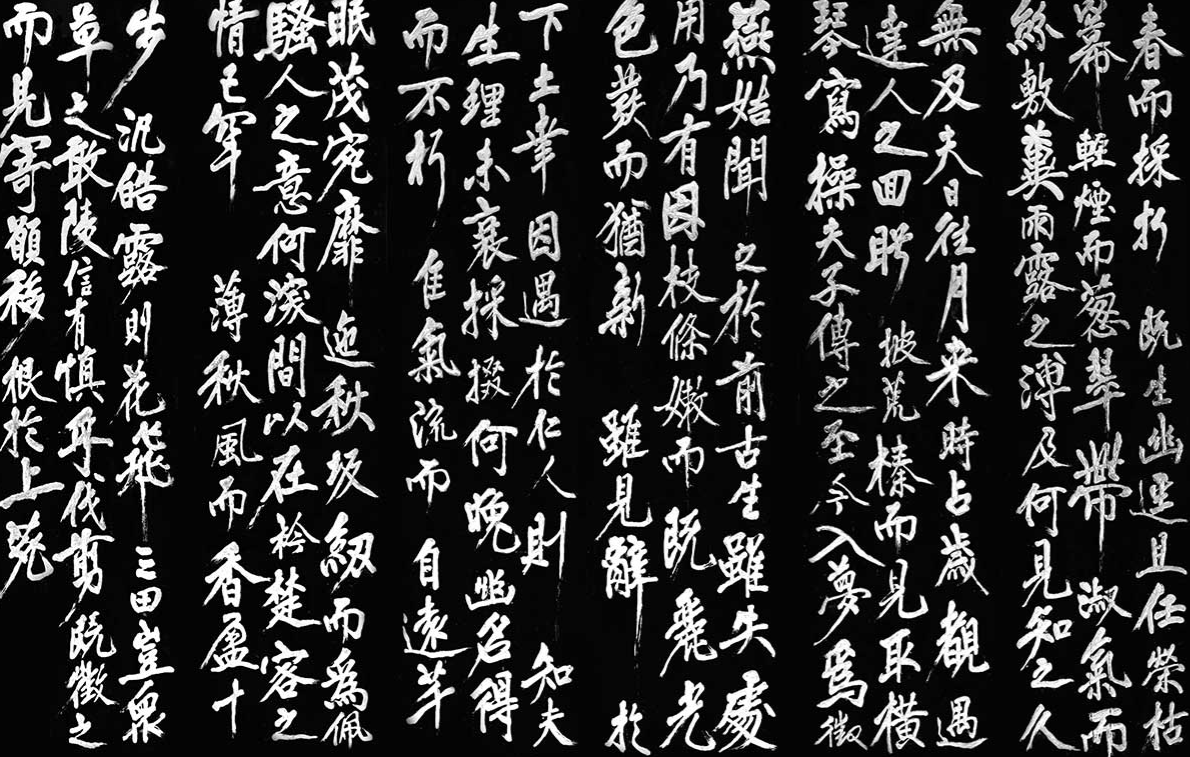 春而採折既生幽逕且任榮枯
幂輕煙而葱翠帶淑氣而
紛敷冀雨露之溥及何見知之久
無及夫日往月来時占歲覿遇
達人之回盻披荒榛而見取橫
琴寫操夫子傳之至今入夢爲徵
燕姞聞之於前古生雖失處
用乃有因枝條嫩而既麗光
色發而猶新雖見辭於
下土幸因遇於仁人則知夫
生理未衰採掇何晚幽名得
而不朽隹氣流而自遠羊
眠茂宛靡迤秋坂紉而爲佩
騷人之意何深間以在衿楚容之
情已罕薄秋風而香盈十
步汎皓露則花飛三田豈衆
草之敢陵信有慎乎伐剪既徵之
而見寄願移根於上苑